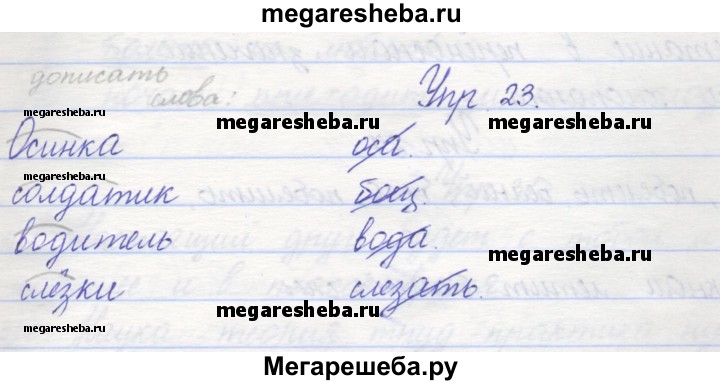 megaresheba.ru
дописать
слова: Упр 23.
megaresheba.ru megaresheba.ru megaresheba.ru
Осинка оса.
солдатик боец.
megaresheba.ru
водитель вода.
megaresheba.ru
слёзки слезать.
megaresheba.ru megaresheba.ru
megaresheba.ru
Мегарешеба.ру